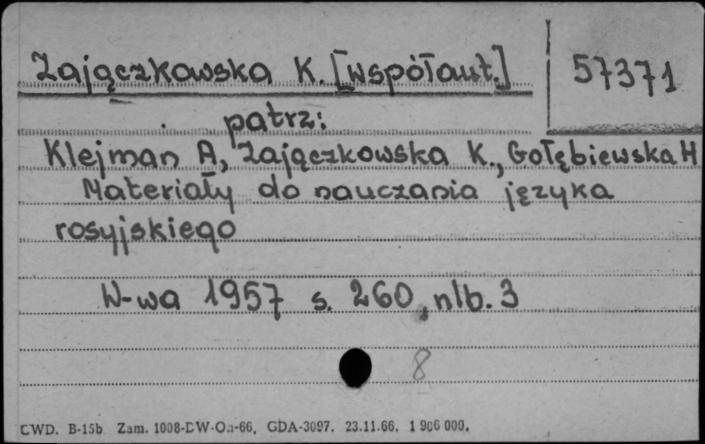 Zajączkowska K. [współaut.]
57371
patrz:
Klejman A, Zajączkowska K., Gołębiewska H
Materiały do nauczania języka
rosyjskiego
W-wa 1957 s. 260, nlb. 3
8
CWD. B-15b Zam. 1008-DW-Oa-66, GDA-3097. 23.11.66. 1 906 000.